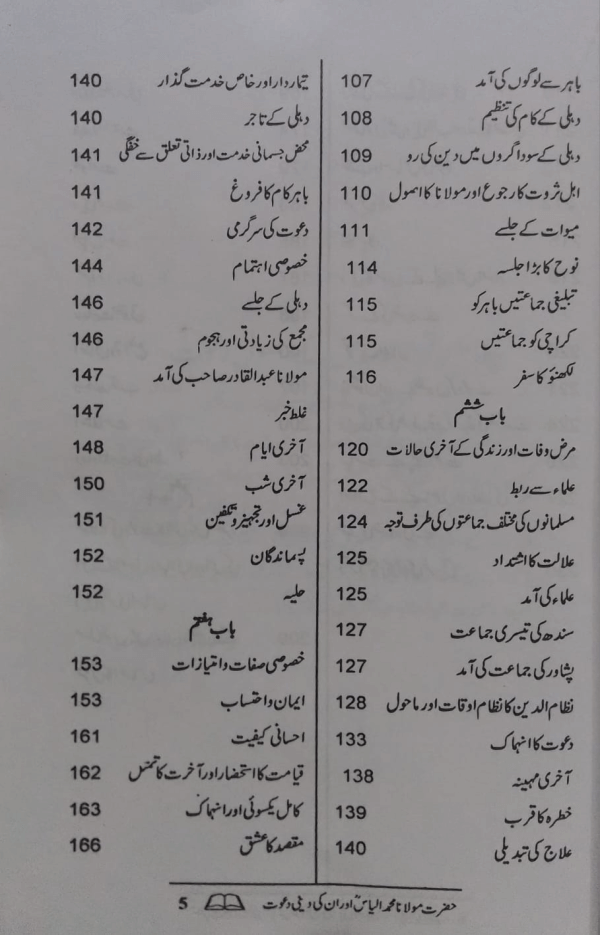 باہر سے لوگوں کی آمد 107
دہلی کے کام کی تنظیم 108
دہلی کے سوداگروں میں دین کی رو 109
اہل ثروت کا رجوع اور مولانا کا اصول 110
میوات کے جلسے 111
نوح کا بڑا جلسہ 114
تبلیغی جماعتیں باہر کو 115
کراچی کو جماعتیں 115
لکھنؤ کا سفر 116
باب ششم
مرض وفات اور زندگی کے آخری حالات 120
علماء سے ربط 122
مسلمانوں کی مختلف جماعتوں کی طرف توجہ 124
علالت کا اشتداد 125
علماء کی آمد 125
سندھ کی تیسری جماعت 127
پشاور کی جماعت کی آمد 127
نظام الدین کا نظام اوقات اور ماحول 128
دعوت کا انہماک 133
آخری مہینہ 138
خطرہ کا قرب 139
علاج کی تبدیلی 140
تیماردار اور خاص خدمت گذار 140
دہلی کے تاجر 140
محض جسمانی خدمت اور ذاتی تعلق سے خفگی 141
باہر کام کا فروغ 141
دعوت کی سرگرمی 142
خصوصی اہتمام 144
دہلی کے جلسے 146
مجمع کی زیادتی اور ہجوم 146
مولانا عبدالقادر صاحب کی آمد 147
غلط خبر 147
آخری ایام 148
آخری شب 150
غسل اور تجہیز و تکفین 151
پسماندگان 152
حلیہ 152
باب ہفتم
خصوصی صفات و امتیازات 153
ایمان و احتساب 153
احسانی کیفیت 161
قیامت کا استحضار اور آخرت کا تمثل 162
کامل یکسوئی اور انہماک 163
مقصد کا عشق 166
حضرت مولانا محمد الیاسؒ اور ان کی دینی دعوت 5